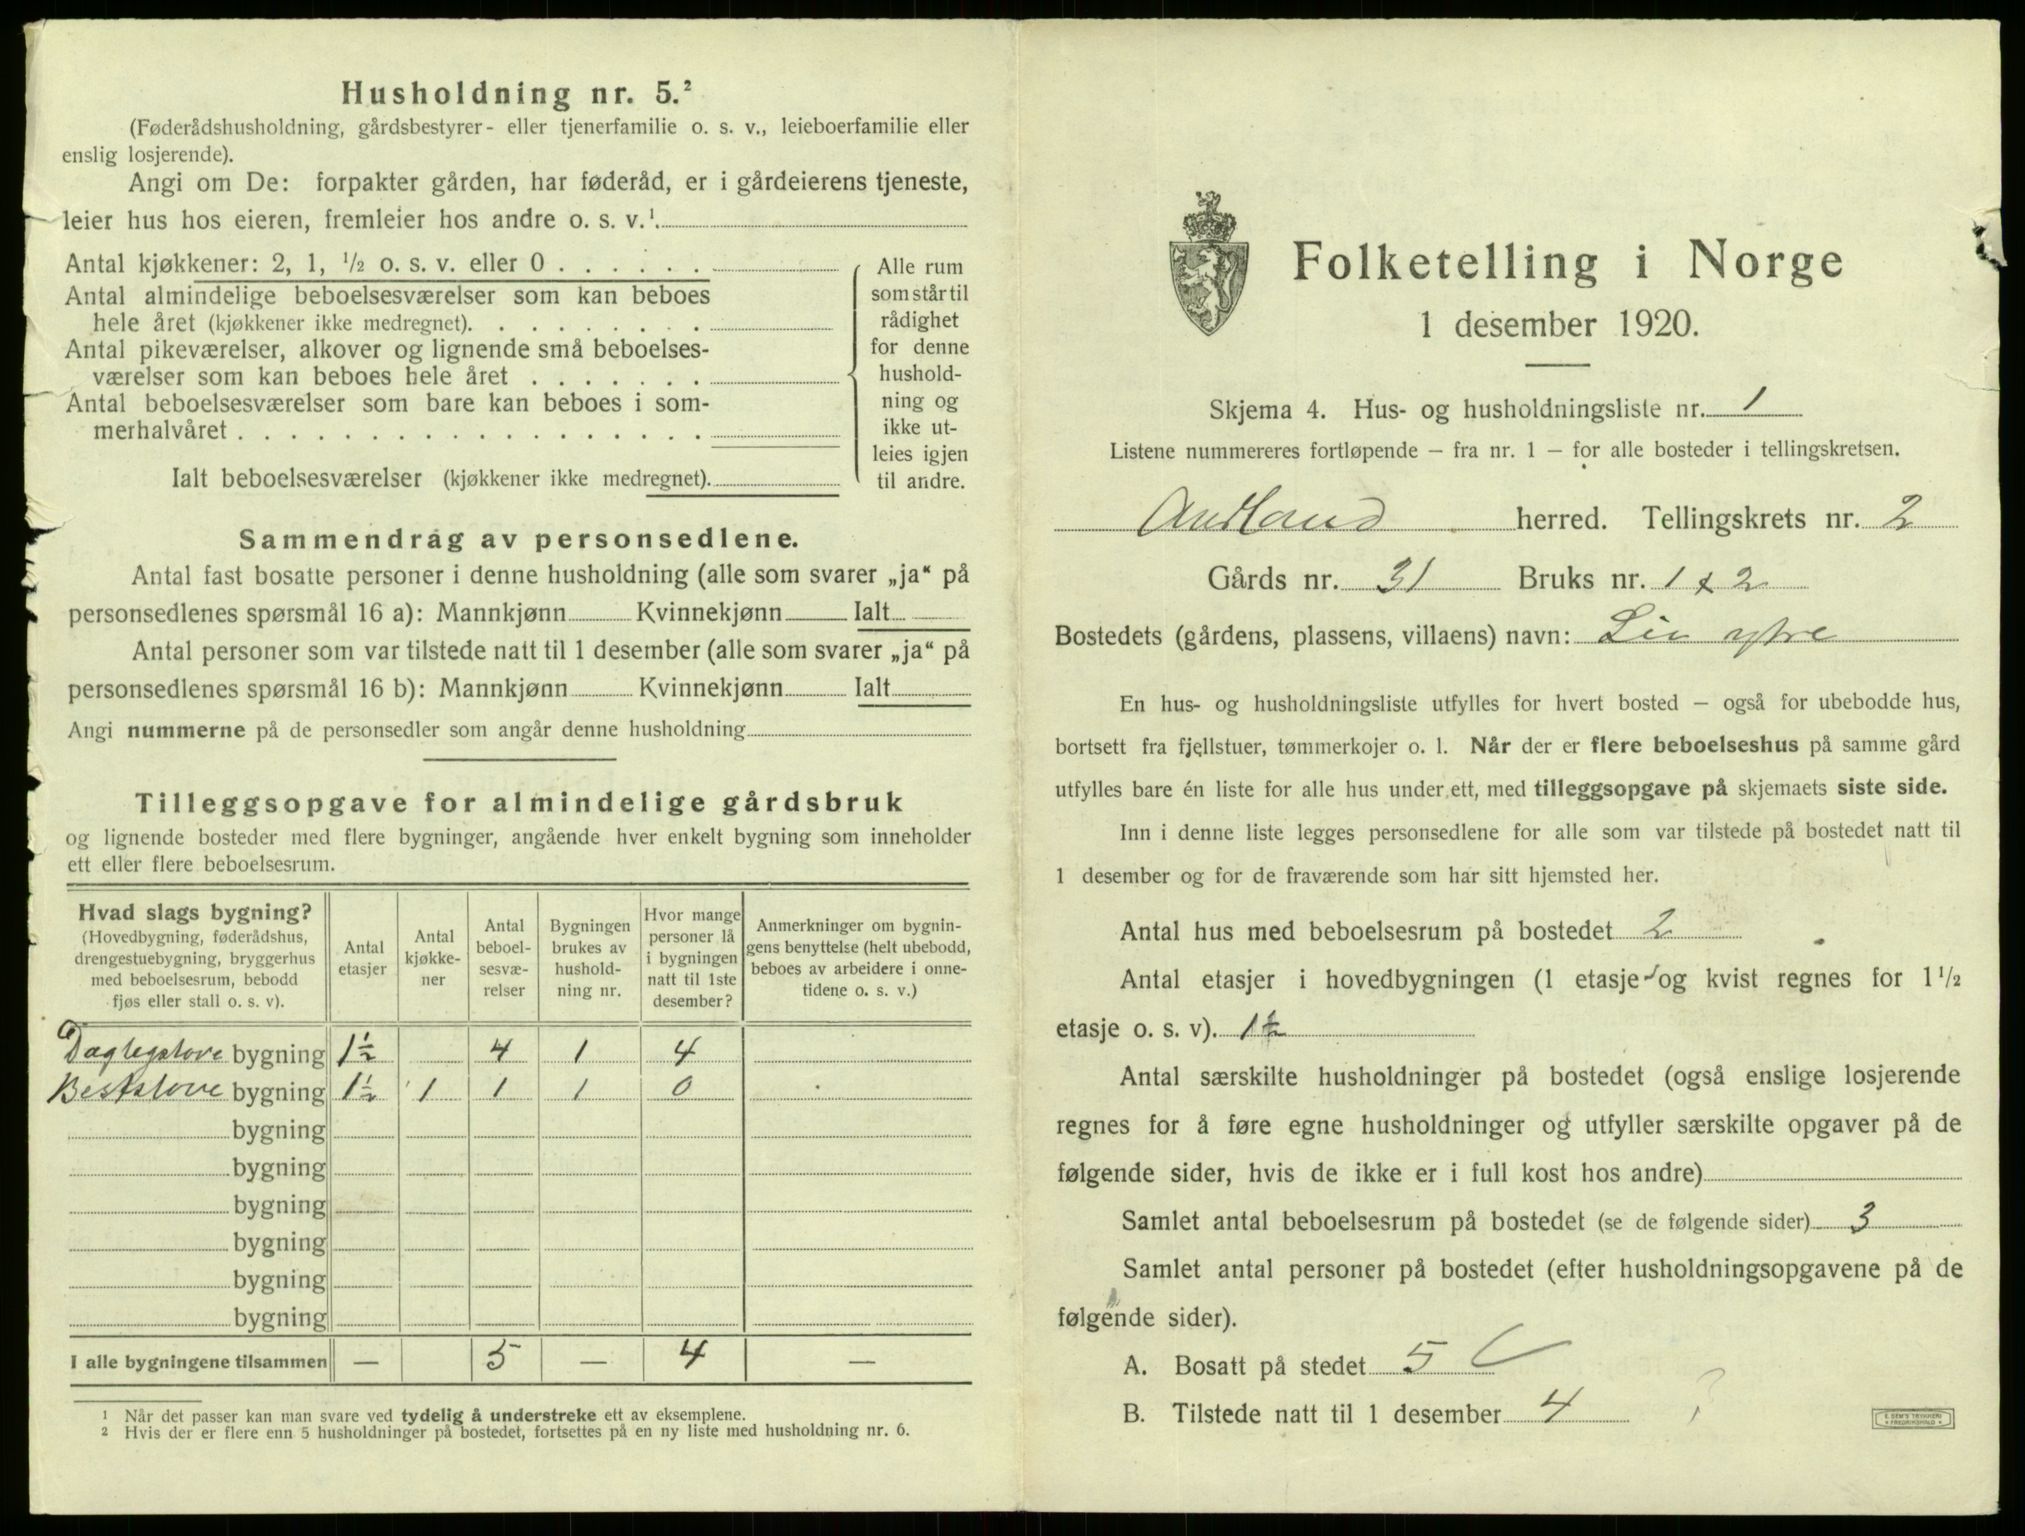 Husholdning nr. 5.²
(Føderådshusholdning, gårdsbestyrer- eller tjenerfamilie o. s. v., leieboerfamilie eller
enslig losjerende).
Angi om De: forpakter gården, har føderåd, er i gårdeierens tjeneste,
leier hus hos eieren, fremleier hos andre o. s. v.¹
Antal kjøkkener: 2, 1, ½ o. s. v. eller 0 . . . . . .
Antal almindelige beboelsesværelser som kan beboes
hele året (kjøkkener ikke medregnet). . . . . . . . .
Antal pikeværelser, alkover og lignende små beboelses-
værelser som kan beboes hele året . . . . . . .
Antal beboelsesværelser som bare kan beboes i som-
merhalvåret . . . . . . . . . . . . . . . . . .
Ialt beboelsesværelser (kjøkkener ikke medregnet).
Alle rum
som står til
rådighet
for denne
hushold-
ning og
ikke ut-
leies igjen
til andre.
Sammendrag av personsedlene.
Antal fast bosatte personer i denne husholdning (alle som svarer „ja“ på
personsedlenes spørsmål 16 a): Mannkjønn Kvinnekjønn Ialt
Antal personer som var tilstede natt til 1 desember (alle som svarer „ja“ på
personsedlenes spørsmål 16 b): Mannkjønn Kvinnekjønn Ialt
Angi nummerne på de personsedler som angår denne husholdning
Tilleggsopgave for almindelige gårdsbruk
og lignende bosteder med flere bygninger, angående hver enkelt bygning som inneholder
ett eller flere beboelsesrum.
Hvad slags bygning?
(Hovedbygning, føderådshus,
drengestuebygning, bryggerhus
med beboelsesrum, bebodd
fjøs eller stall o. s. v).
Antal
etasjer
Antal
kjøkke-
ner
Antal
beboel-
sesvæ-
relser
Bygningen
brukes av
hushold-
ning nr.
Hvor mange
personer lå
i bygningen
natt til 1ste
desember?
Anmerkninger om bygnin-
gens benyttelse (helt ubebodd,
beboes av arbeidere i onne-
tidene o. s. v.)
Daglegstove bygning 1½ 4 1 4
Beststove bygning 1½ 1 1 1 0
bygning
bygning
bygning
bygning
bygning
bygning
I alle bygningene tilsammen — 5 — 4 —
¹ Når det passer kan man svare ved tydelig å understreke ett av eksemplene.
² Hvis der er flere enn 5 husholdninger på bostedet, fortsettes på en ny liste med husholdning nr. 6.
Folketelling i Norge
1 desember 1920.
Skjema 4. Hus- og husholdningsliste nr. 1
Listene nummereres fortløpende – fra nr. 1 – for alle bosteder i tellingskretsen.
Aurland herred. Tellingskrets nr. 2
Gårds nr. 31 Bruks nr. 1 & 2
Bostedets (gårdens, plassens, villaens) navn: Li ytre
En hus- og husholdningsliste utfylles for hvert bosted – også for ubebodde hus,
bortsett fra fjellstuer, tømmerkojer o. l. Når der er flere beboelseshus på samme gård
utfylles bare én liste for alle hus under ett, med tilleggsopgave på skjemaets siste side.
Inn i denne liste legges personsedlene for alle som var tilstede på bostedet natt til
1 desember og for de fraværende som har sitt hjemsted her.
Antal hus med beboelsesrum på bostedet 2
Antal etasjer i hovedbygningen (1 etasje og kvist regnes for 1½
etasje o. s. v). 1½
Antal særskilte husholdninger på bostedet (også enslige losjerende
regnes for å føre egne husholdninger og utfyller særskilte opgaver på de
følgende sider, hvis de ikke er i full kost hos andre)
Samlet antal beboelsesrum på bostedet (se de følgende sider) 3
Samlet antal personer på bostedet (efter husholdningsopgavene på de
følgende sider).
A. Bosatt på stedet 5
B. Tilstede natt til 1 desember 4 ?
E. SEM'S TRYKKERI
FREDRIKSHALD